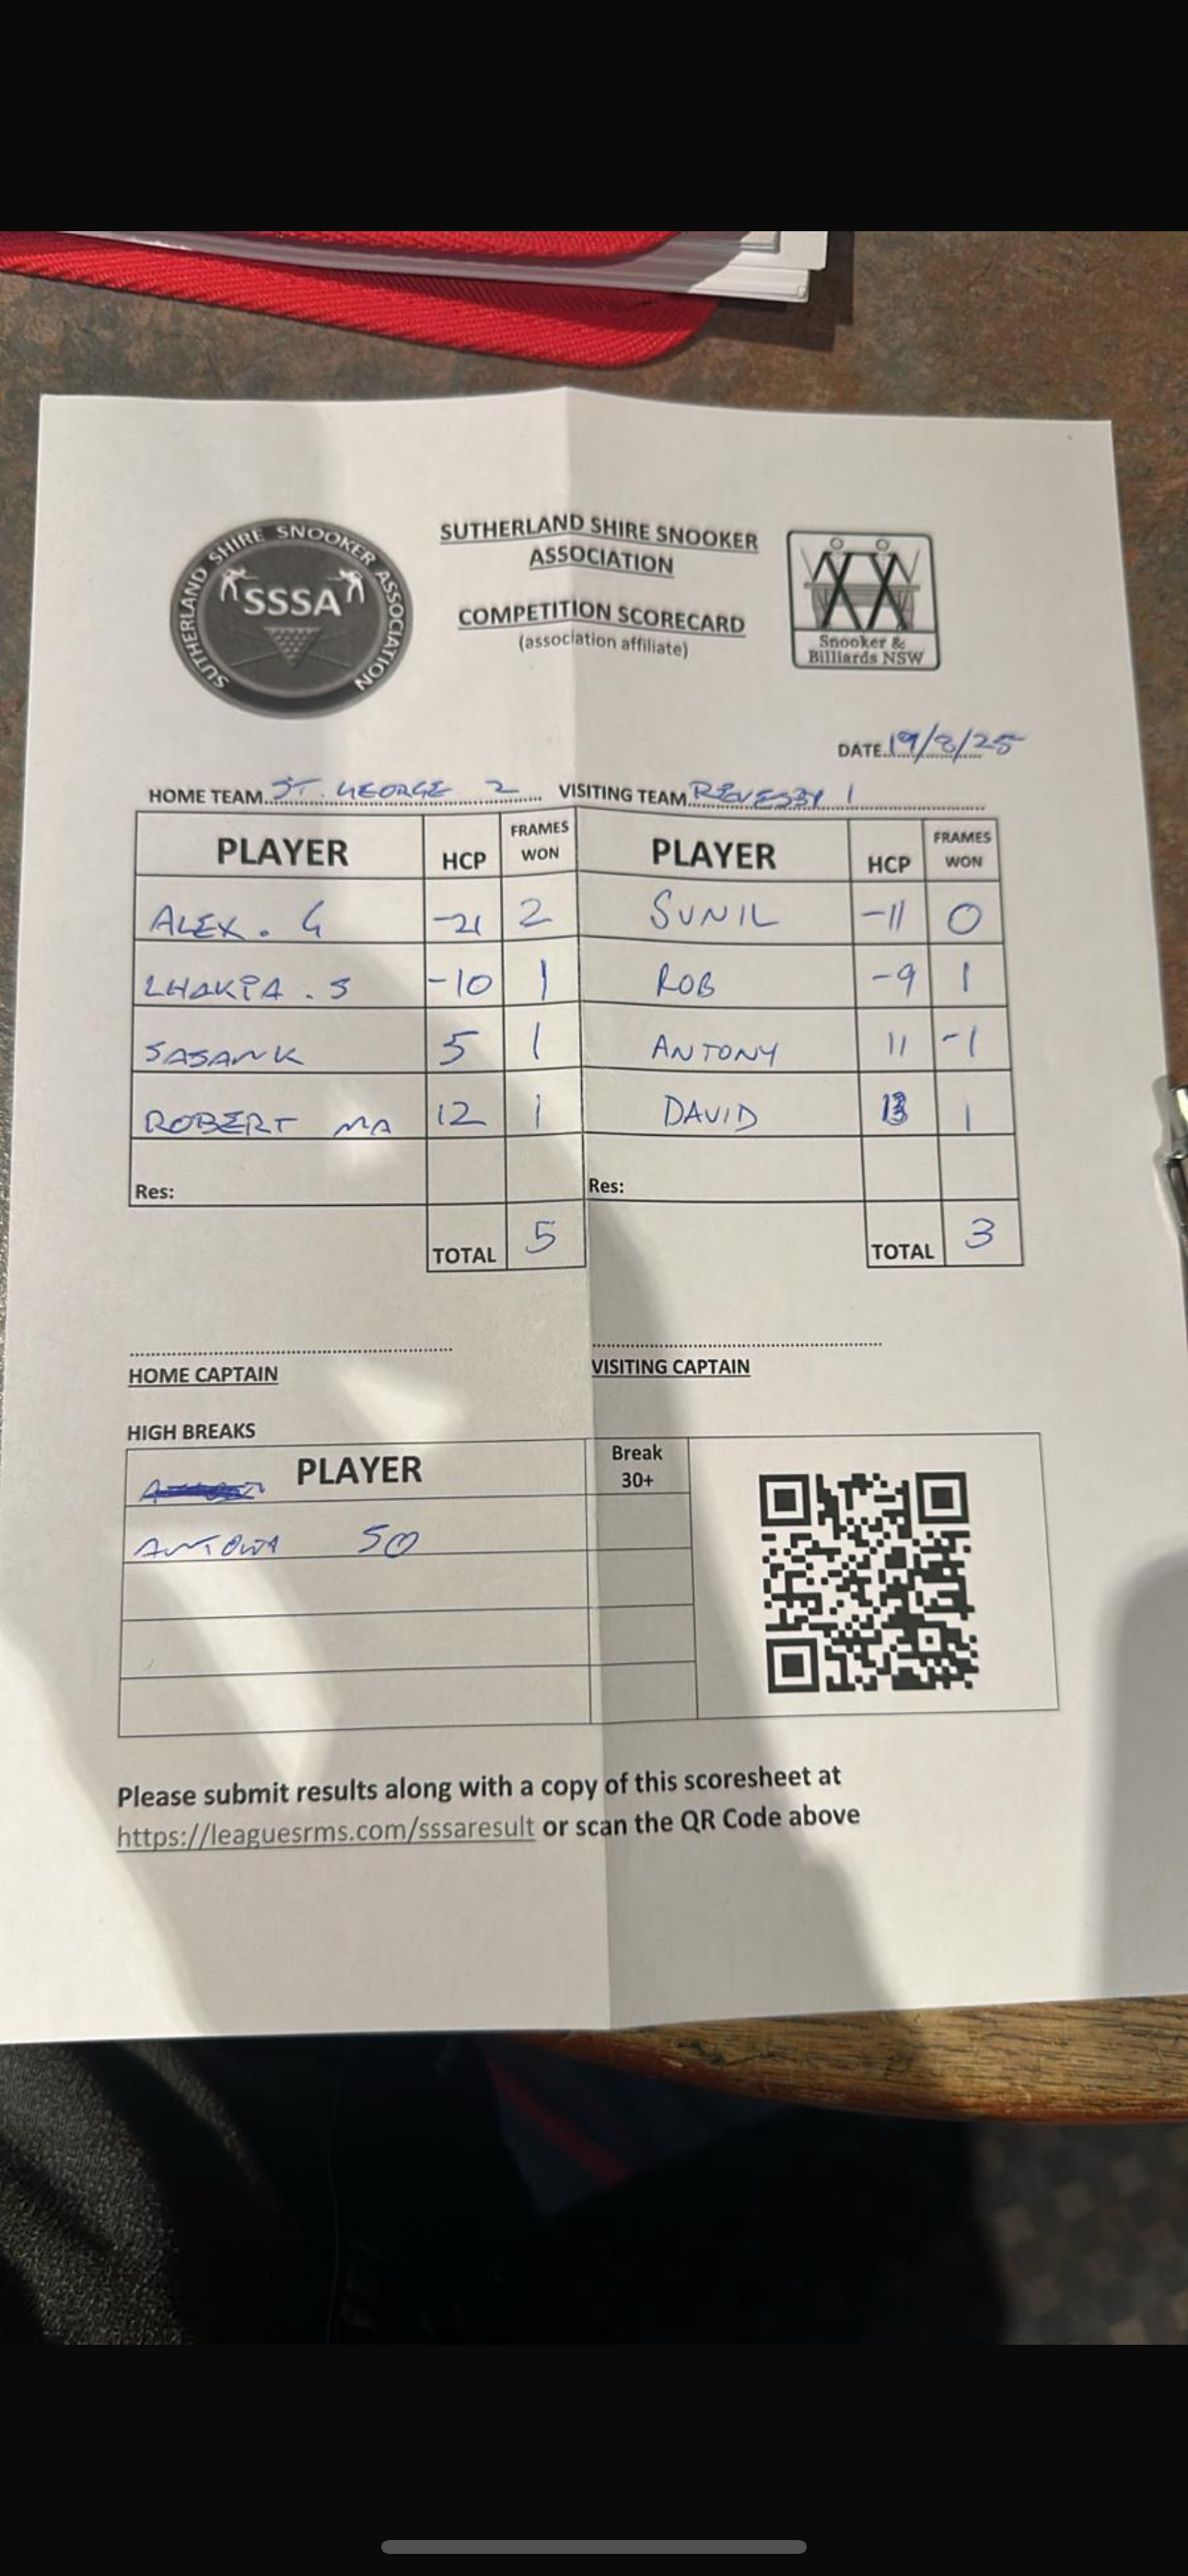 SUTHERLAND SHIRE SNOOKER ASSOCIATION
SSSA
SUTHERLAND SHIRE SNOOKER
ASSOCIATION
COMPETITION SCORECARD
(association affiliate)
Snooker &
Billiards NSW
DATE 19/8/25
HOME TEAM ST. GEORGE 2 VISITING TEAM REVESBY 1
PLAYER HCP FRAMES WON PLAYER HCP FRAMES WON
ALEX. G -21 2 SUNIL -11 0
LHAKPA. S -10 1 ROB -9 1
SASANK 5 1 ANTONY 11 -1
ROBERT MA 12 1 DAVID 13 1
Res: Res:
TOTAL 5 TOTAL 3
HOME CAPTAIN VISITING CAPTAIN
HIGH BREAKS
PLAYER Break 30+
50
Please submit results along with a copy of this scoresheet at
https://leaguesrms.com/sssaresult or scan the QR Code above